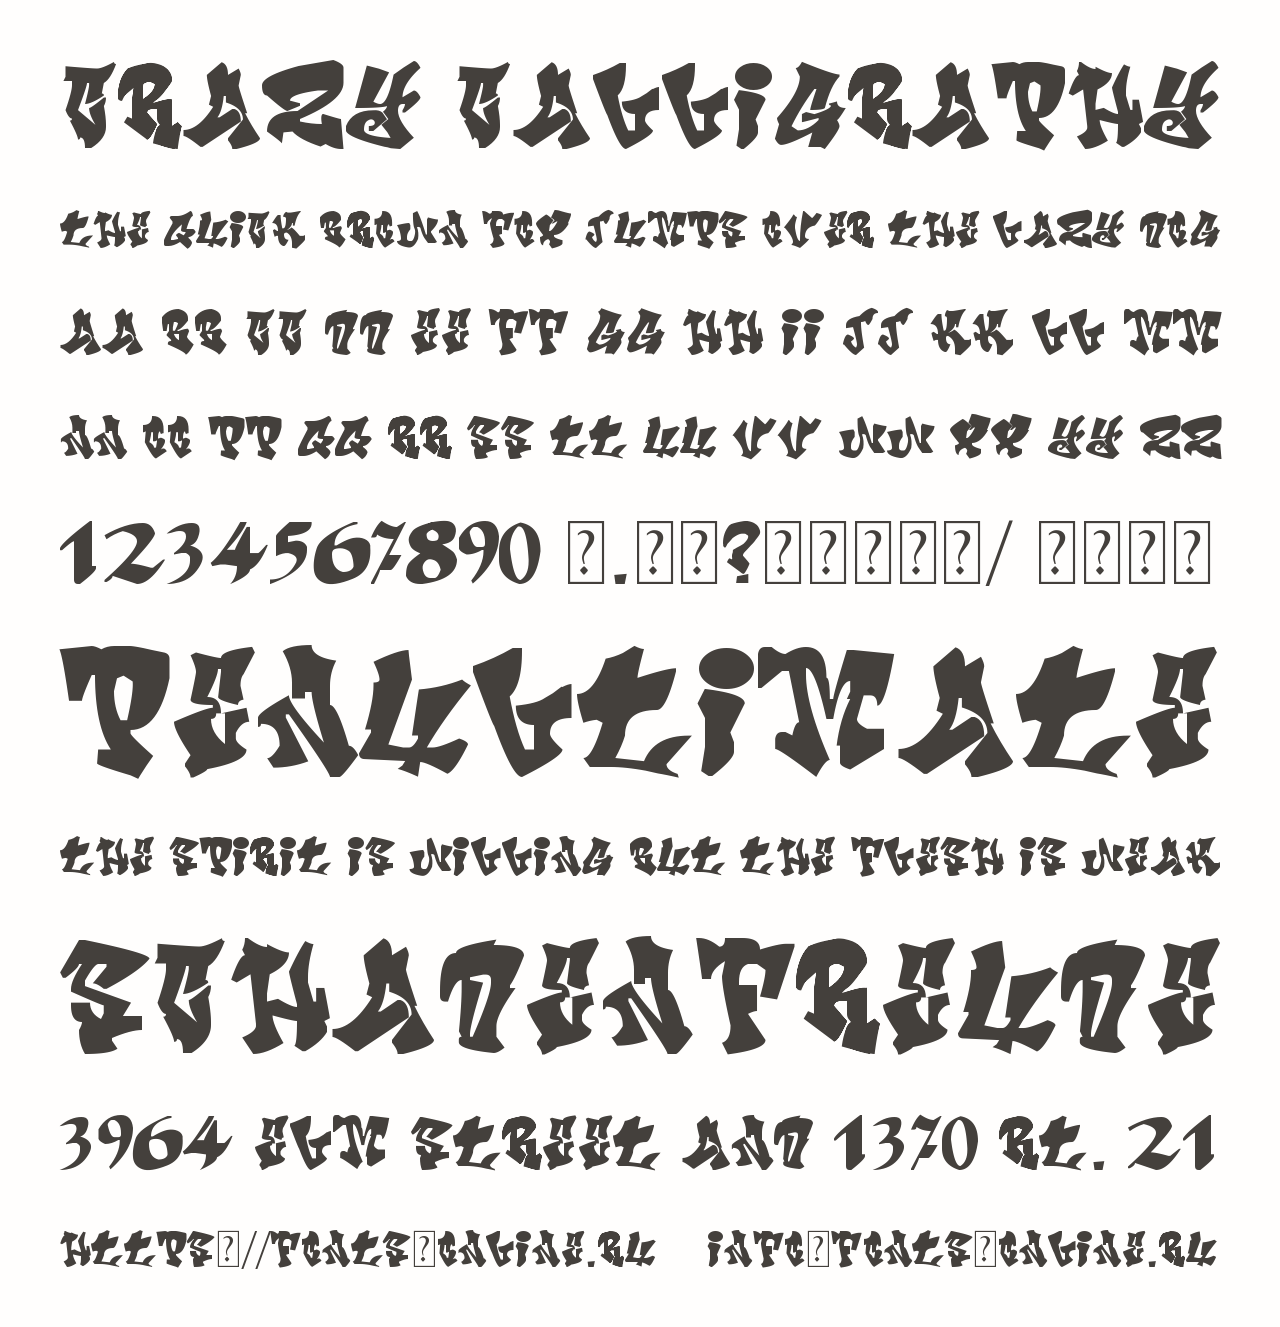 CRAZY CALLiGRAPHY
tHE QUiCK BROWN FOX JUMPS OVER tHE LAZY DOG
AA BB CC DD EE FF GG HH ii JJ KK LL MM
NN OO PP QQ RR SS tt UU VV WW XX YY ZZ
1234567890 ⍰.⍰⍰?⍰⍰⍰⍰⍰/ ⍰⍰⍰⍰
PENULtiMAtE
tHE SPiRit iS WiLLiNG BUt tHE FLESH iS WEAK
SCHADENFREUDE
3964 ELM StREEt AND 1370 Rt. 21
HttPS⍰//FONtS⍰ONLiNE.RU iNFO⍰FONtS⍰ONLiNE.RU